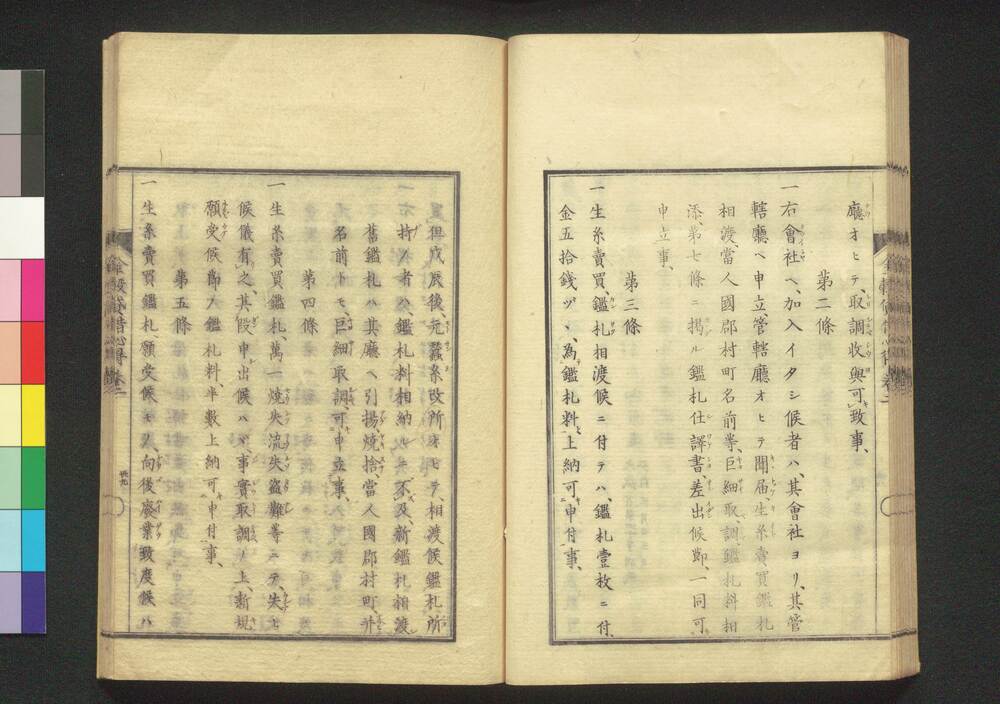 廳オヒテ、取調收與可致事、
第二條
一右會社ヘ、加入イタシ候者ハ、其會社ヨリ、其管
轄廳ヘ申立、管轄廳オヒテ聞届、生糸賣買鑑札
相渡、當人國郡村町名前等、巨細取調、鑑札料相
添、第七條ニ掲ル鑑札仕譯書、差出候節、一同可
申立事、
第三條
一生糸賣買、鑑札相渡候ニ付テハ、鑑札壹枚ニ付、
金五拾錢ヅヽ、為鑑札料上納可申付事、
但戊辰後、元蠶糸改所オヒテ、相渡候鑑札所
持ノ者ハ、鑑札料相納ルニ不及、新鑑札相渡
舊鑑札ハ其廳ヘ引揚燒捨、當人國郡村町、并
名前トモ、巨細取調可申立事、
第四條
一生糸賣買鑑札、萬一燒失流失盗難等ニテ、失ヒ
候儀有之、其段申出候ハヾ、事實取調ノ上、新規
願受候節ノ鑑札料、半數上納可申付事、
第五條
一生糸賣買鑑札、願受候モノ、向後廢業致度候ハ